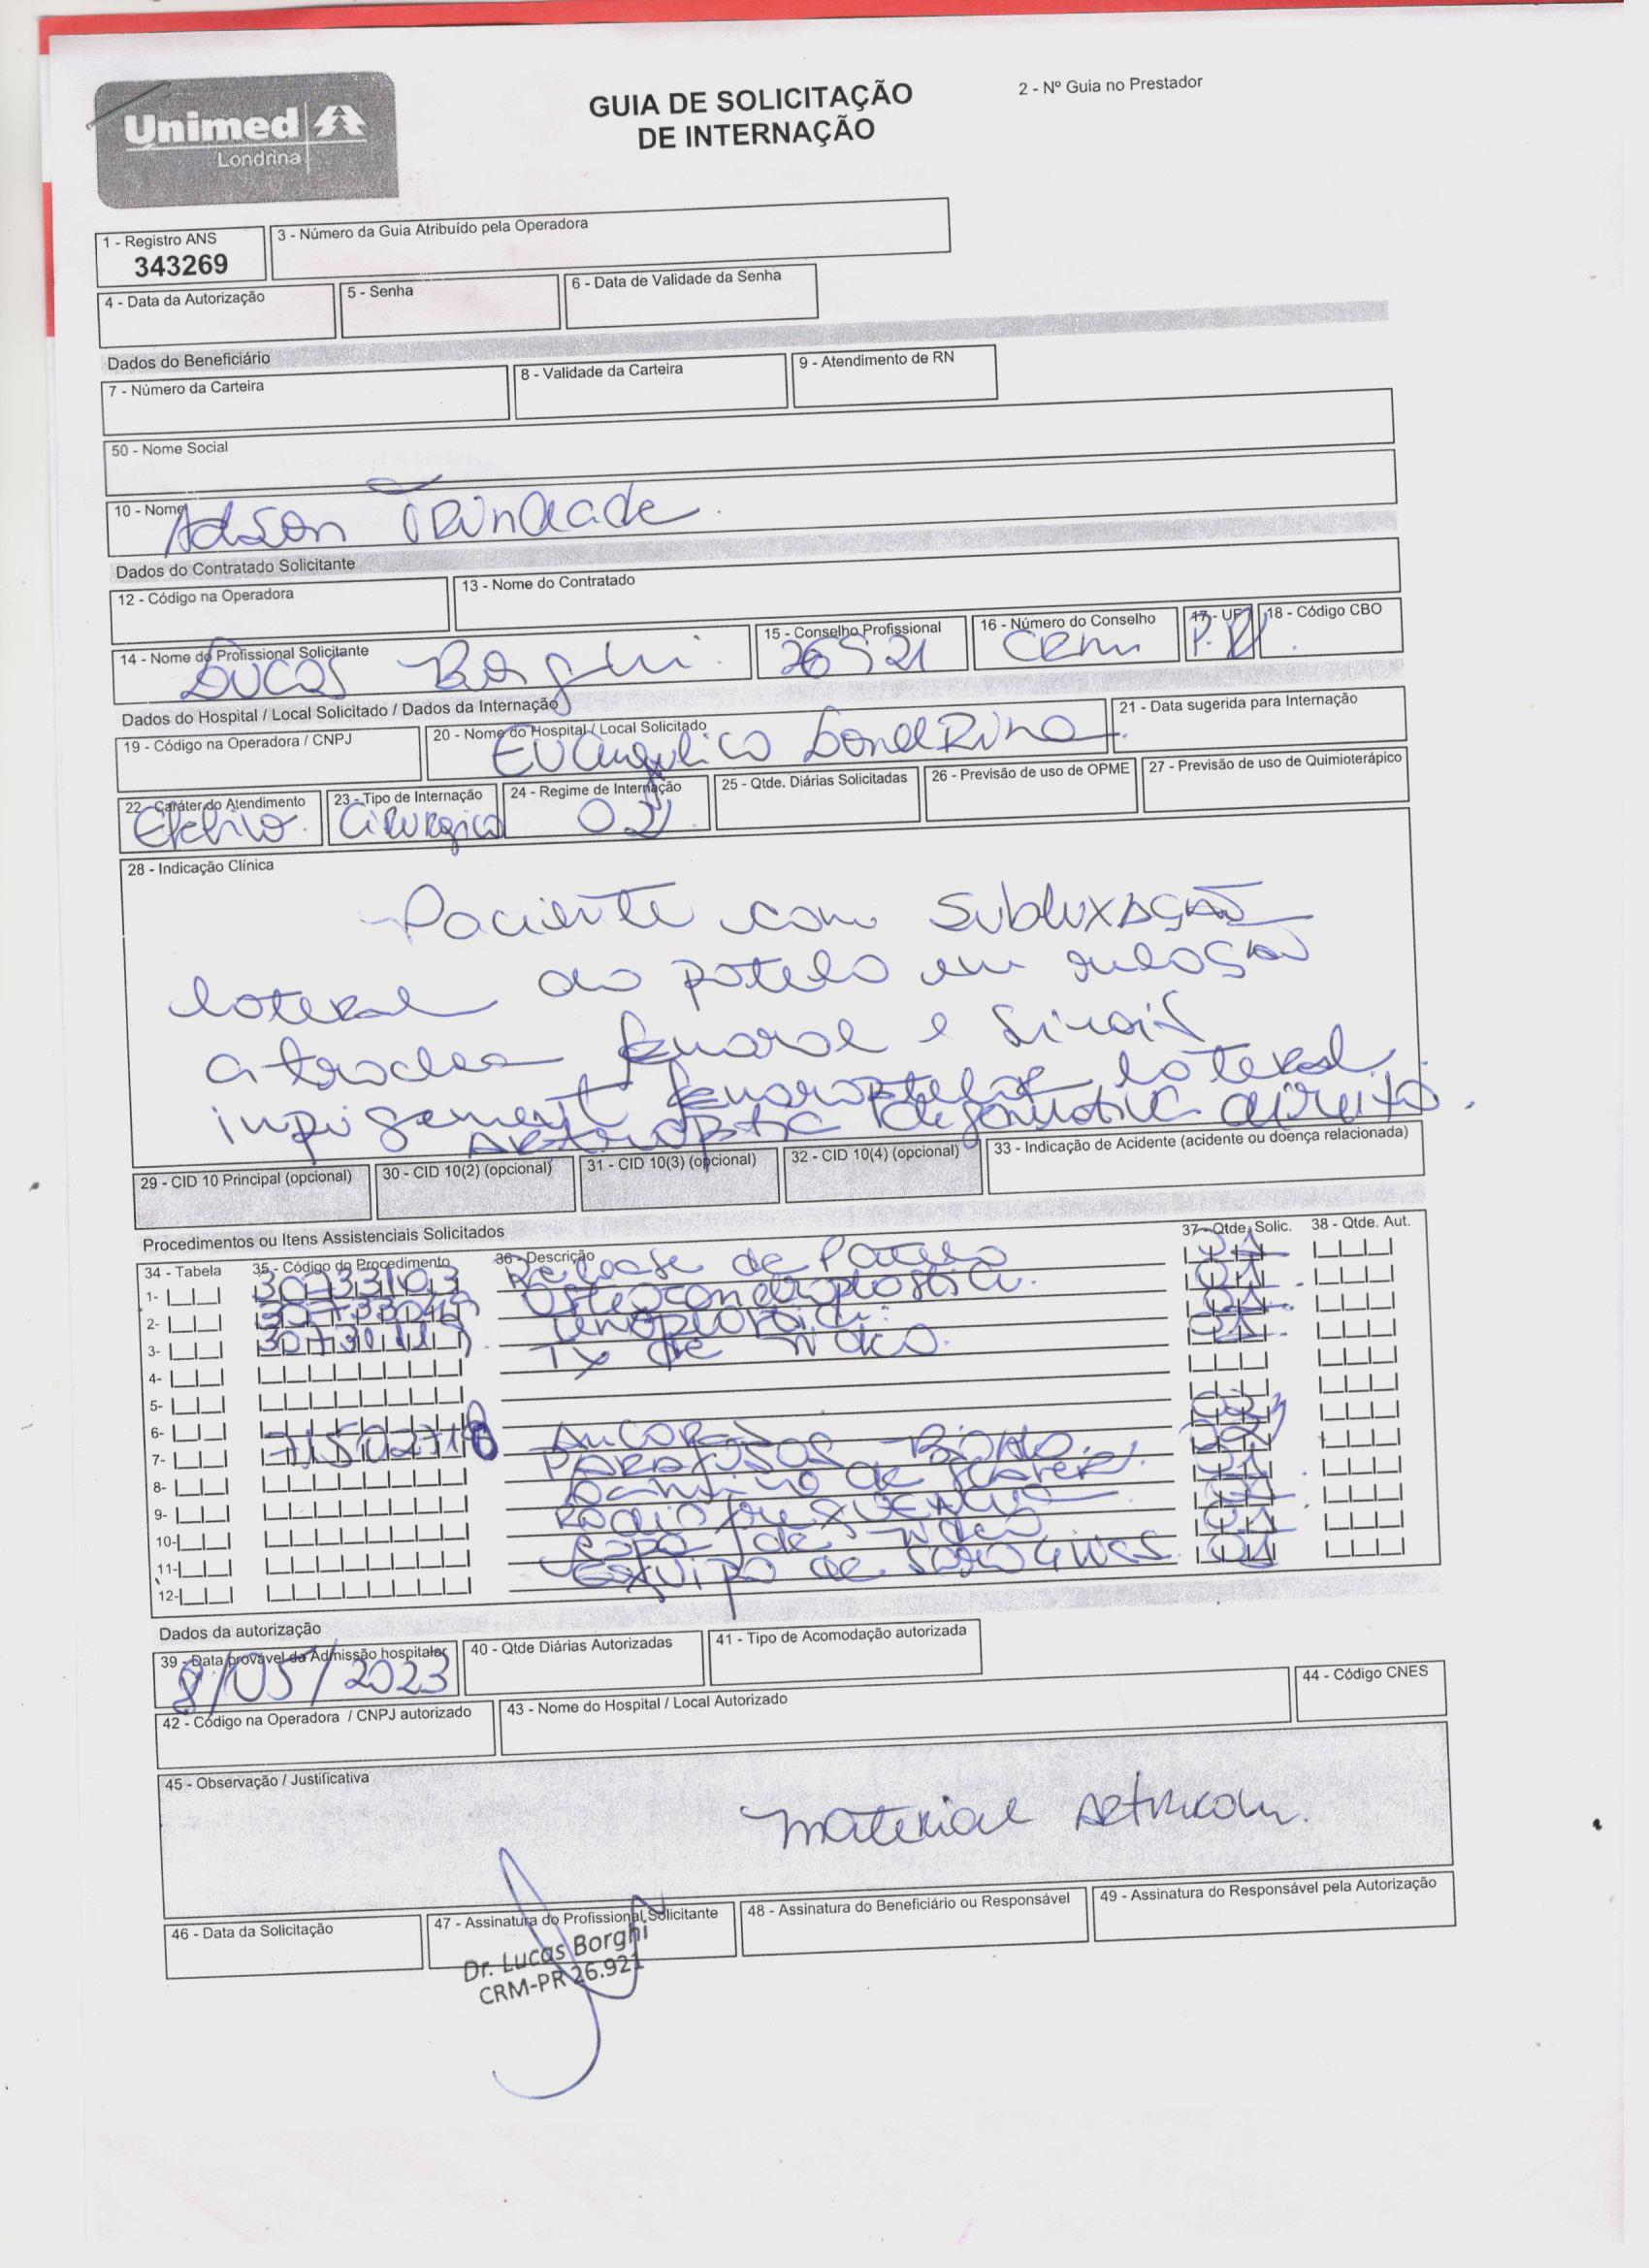 Unimed
Londrina
GUIA DE SOLICITAÇÃO
DE INTERNAÇÃO
2 - Nº Guia no Prestador
1 - Registro ANS
343269
3 - Número da Guia Atribuído pela Operadora
4 - Data da Autorização
5 - Senha
6 - Data de Validade da Senha
Dados do Beneficiário
7 - Número da Carteira
8 - Validade da Carteira
9 - Atendimento de RN
50 - Nome Social
10 - Nome
Adson Trindade
Dados do Contratado Solicitante
12 - Código na Operadora
13 - Nome do Contratado
14 - Nome do Profissional Solicitante
Lucas Borghi
15 - Conselho Profissional
26921
16 - Número do Conselho
CRM
17 - UF
PR
18 - Código CBO
Dados do Hospital / Local Solicitado / Dados da Internação
19 - Código na Operadora / CNPJ
20 - Nome do Hospital / Local Solicitado
Evangelico Londrina
21 - Data sugerida para Internação
22 - Caráter do Atendimento
Eletivo
23 - Tipo de Internação
Cirurgica
24 - Regime de Internação
25 - Qtde. Diárias Solicitadas
26 - Previsão de uso de OPME
27 - Previsão de uso de Quimioterápico
28 - Indicação Clínica
Paciente com subluxação
lateral da patela em relação
a troclea femoral e sinais
femoropatelar lateral.
direito.
29 - CID 10 Principal (opcional)
30 - CID 10(2) (opcional)
31 - CID 10(3) (opcional)
32 - CID 10(4) (opcional)
33 - Indicação de Acidente (acidente ou doença relacionada)
Procedimentos ou Itens Assistenciais Solicitados
34 - Tabela
35 - Código do Procedimento
36 - Descrição
37 - Qtde. Solic.
38 - Qtde. Aut.
1- 30733103 Release de Patela
2- Osteocondroplastia.
3-
Tx de video.
4-
5-
6-
7- Ancoras
8- Parafusos
9- Lamina de Shaver.
10- Radiofrequencia
11- Capa de video
12- Equipo de
Dados da autorização
39 - Data provável da Admissão hospitalar
8/05/2023
40 - Qtde Diárias Autorizadas
41 - Tipo de Acomodação autorizada
42 - Código na Operadora / CNPJ autorizado
43 - Nome do Hospital / Local Autorizado
44 - Código CNES
45 - Observação / Justificativa
material
46 - Data da Solicitação
47 - Assinatura do Profissional Solicitante
48 - Assinatura do Beneficiário ou Responsável
49 - Assinatura do Responsável pela Autorização
Dr. Lucas Borghi
CRM-PR 26.921